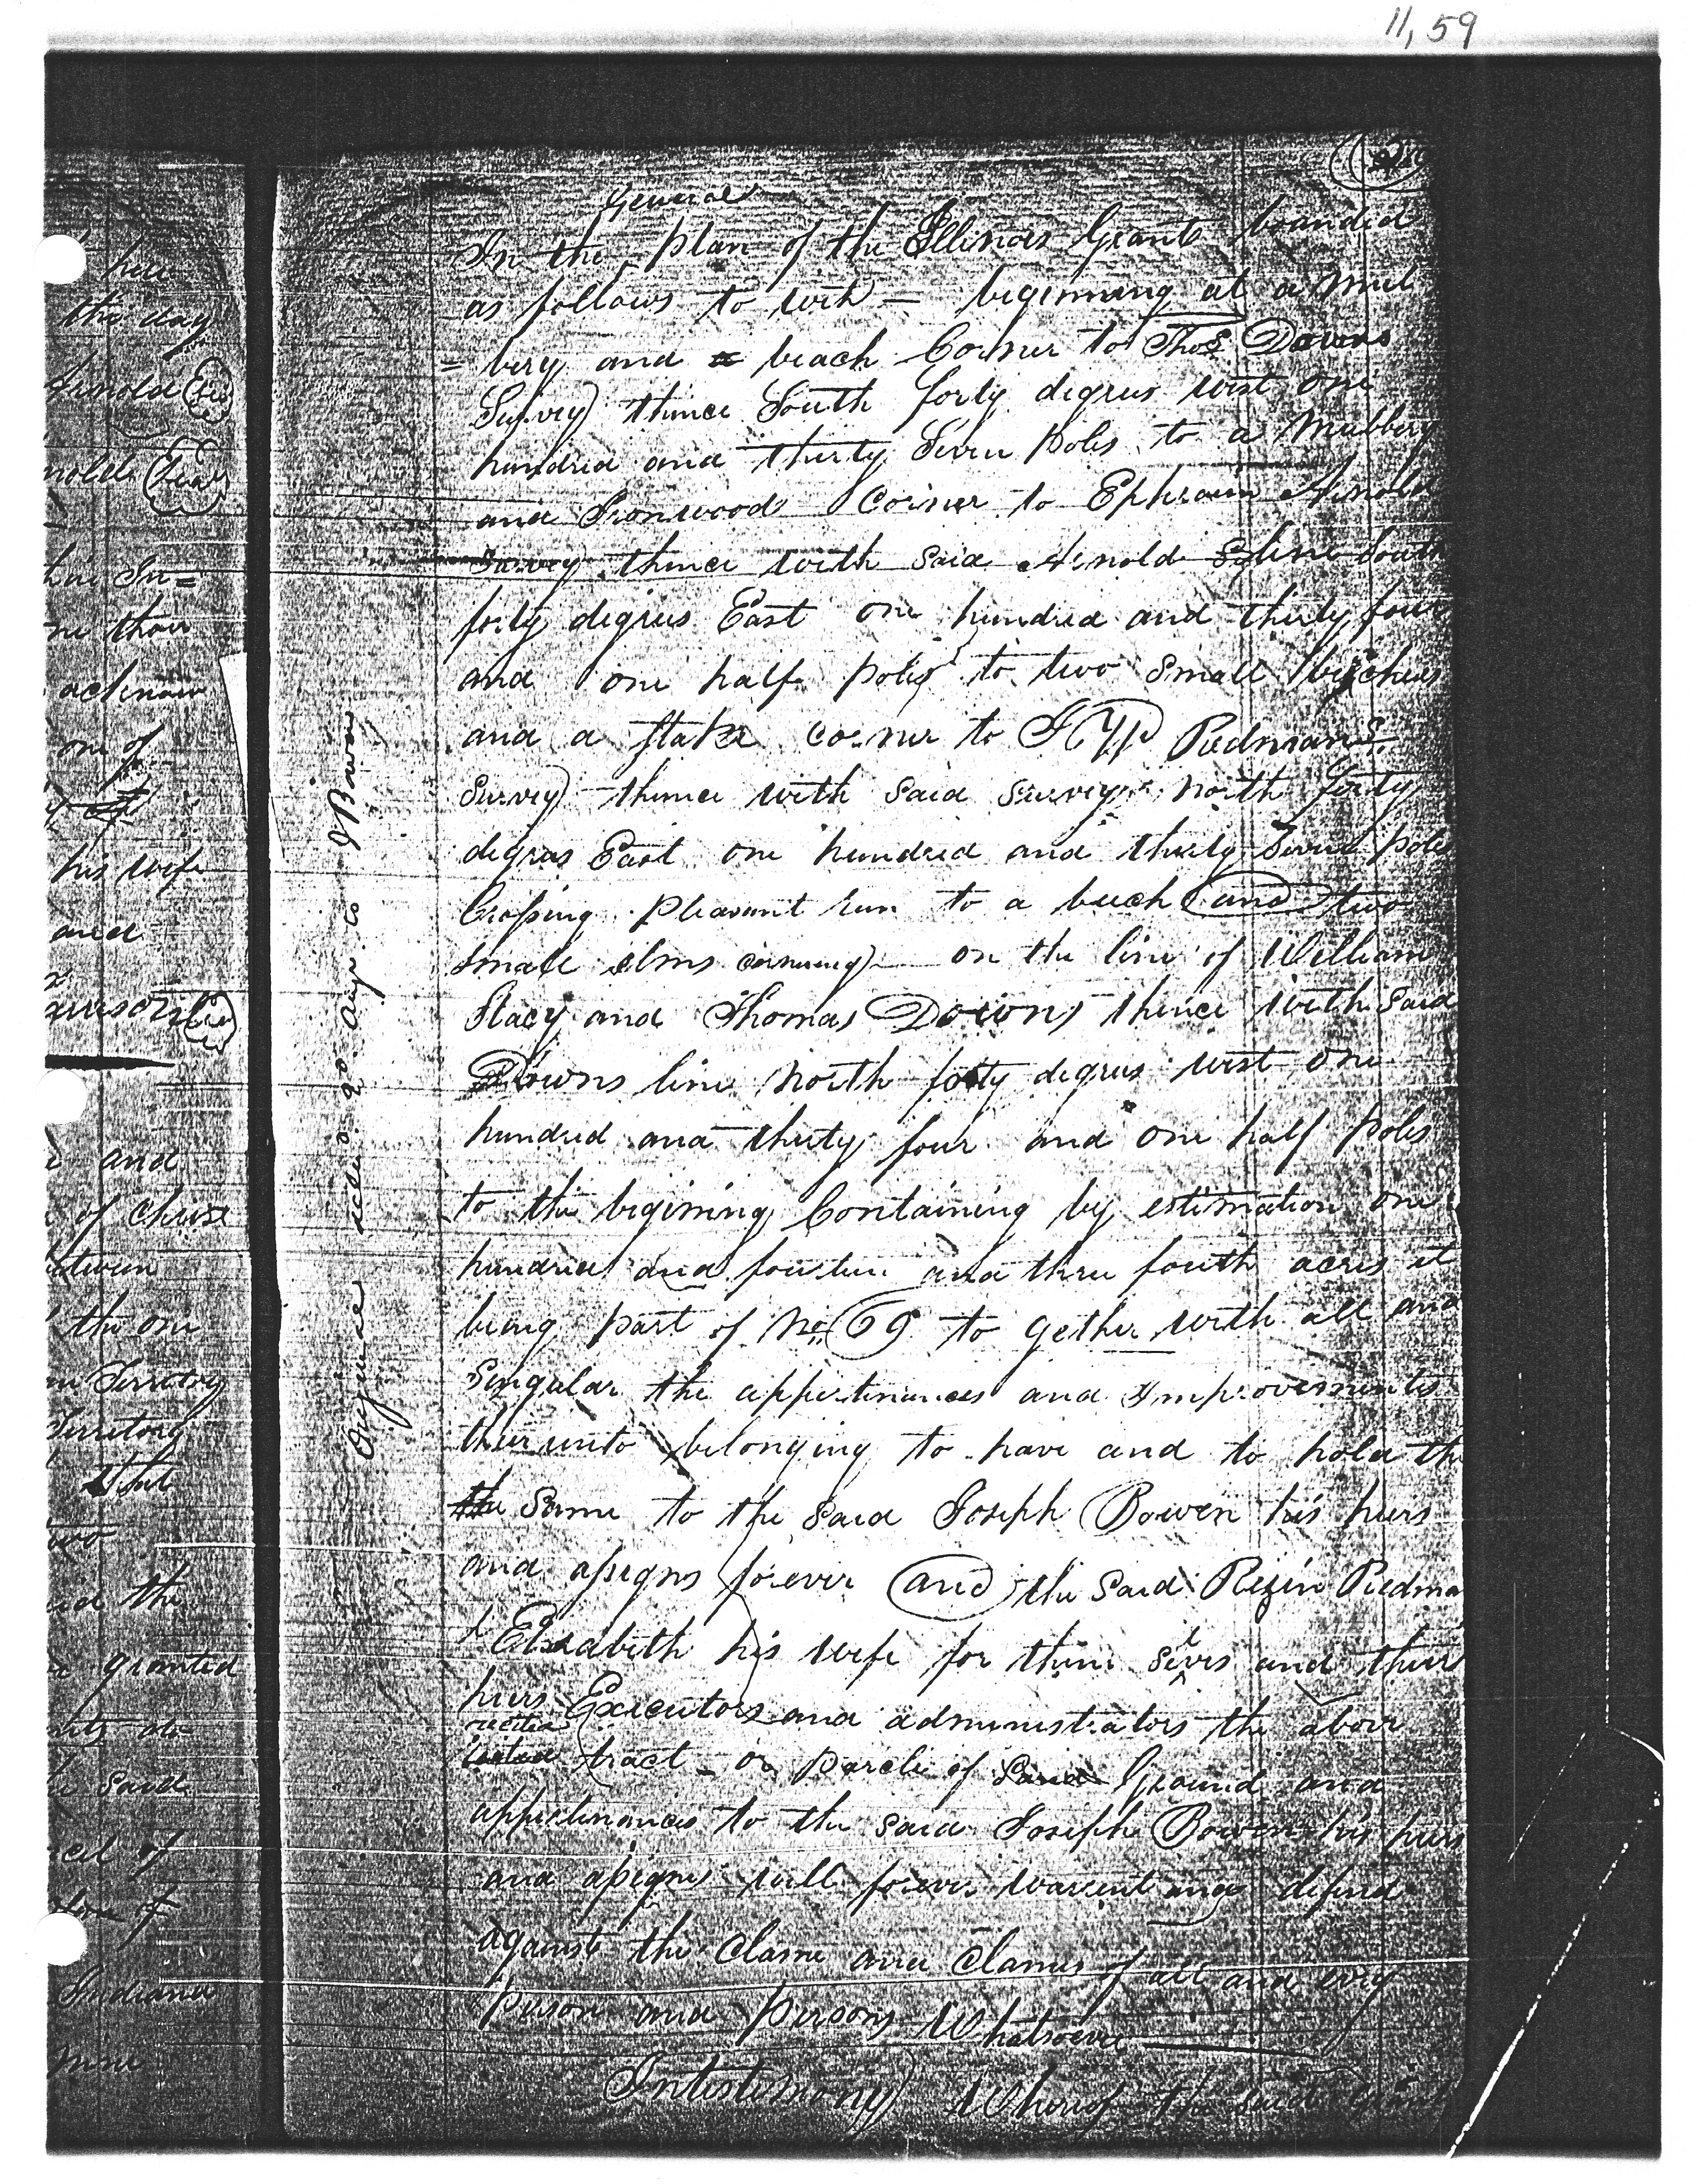 11,59
General
In the plan of the Illinois Grant bounded
as follows to with = beginning at a Mul
= bery and a beach Corner to Thos Downs
Survey thence South forty degrees west one
hundred and thirty Seven poles to a Mulbery
and Ironwood Corner to Ephraim Arnold
Survey thence with said Arnold S line South
forty degrees East one hundred and thirty four
and one half poles to two small beeches
and a stake corner to Redmans
Survey thence with said survey north forty
degras East one hundred and thirty Seven poles
Crossing pleasant run to a beech and two
small elms cornering on the line of William
Stacy and Thomas Downs thence with Said
Downs line north forty degrees west one
hundred and thirty four and one half poles
to the begining Containing by estimation one
hundred and fourteen and three fourth acres it
being part of No 69 to gether with all and
Singular the appertinances and Improvements
thereunto belonging to have and to hold the
the Same to the Said Joseph Bowen his heirs
and assigns forever and the Said Rezin Redma
& Elizabeth his wife for them selves and their
heirs Executors and administrators the above
recited
tract or parcle of Land Ground and
appertinances to the said Joseph Bowen his heirs
and assigns will forever warent and defend
against the Clame and Clames of all and evry
Person and Persons Whatsoever
Intestimony Whereof the said
Original to J Bowen
her
the day
Arnold
nold
me thou
acknow
one of
his wife
and
and
of Chuse
etween
the one
Territory
Territory
that
two
id the
granted
Said
cel of
Indiana